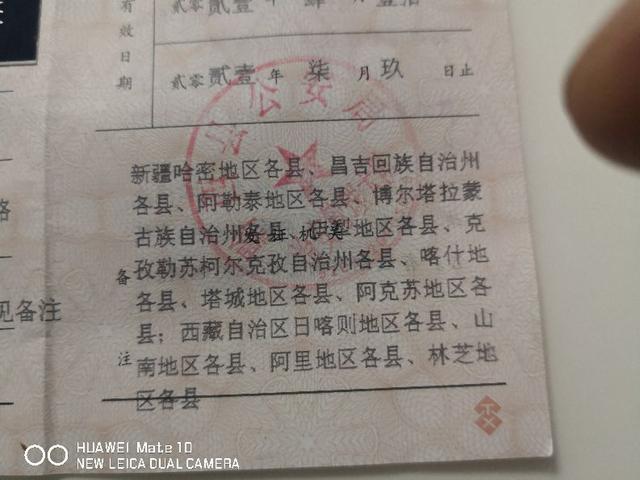 有效日期
贰零贰壹年柒月玖日止
公安局
新疆哈密地区各县、昌吉回族自治州
各县、阿勒泰地区各县、博尔塔拉蒙
古族自治州各县、伊犁地区各县、克
孜勒苏柯尔克孜自治州各县、喀什地
各县、塔城地区各县、阿克苏地区各
县；西藏自治区日喀则地区各县、山
南地区各县、阿里地区各县、林芝地
区各县
备注
见备注
HUAWEI Mate 10
NEW LEICA DUAL CAMERA